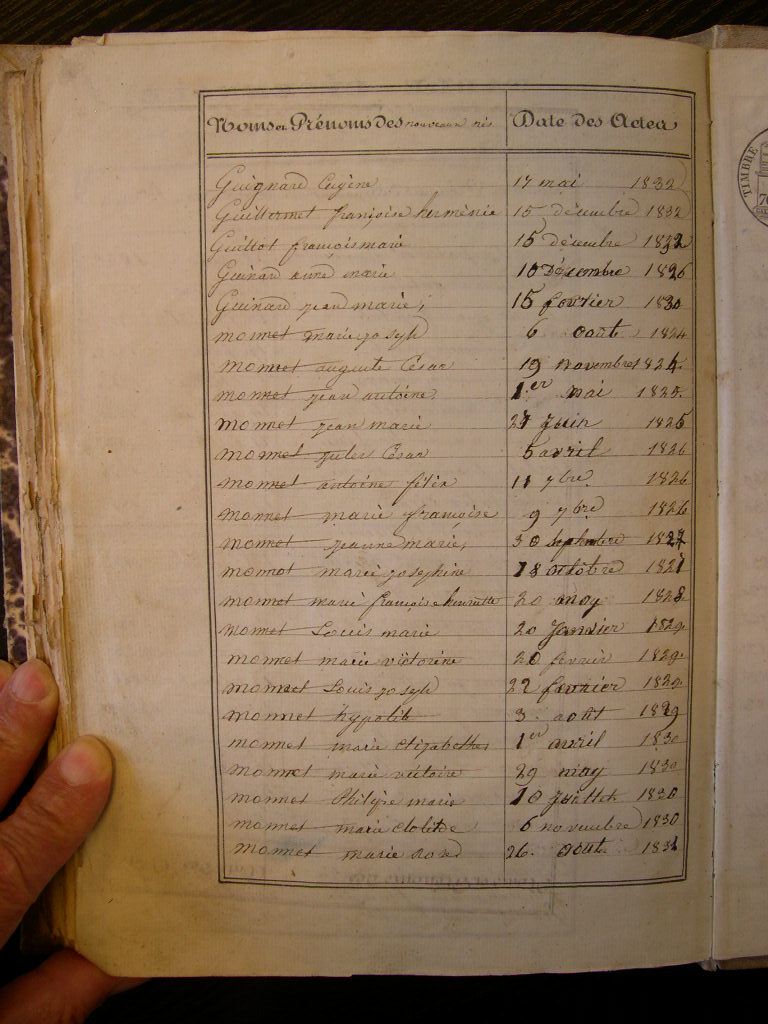 Noms et Prénoms des nouveaux nés Date des Actes
Guignard Eugène 17 mai 1832
Guillermet françoise herménie 15 décembre 1832
Guillot françois marie 15 décembre 1832
Guinard anne marie 10 Décembre 1826
Guinard jean marie, 15 fevrier 1830
monnet marie joseph 6 août 1824
monnet auguste César 19 novembre 1824.
monnet jean antoine 1.er mai 1825.
monnet jean marie 27 juin 1825
monnet jules César 5 avril 1826
monnet antoine félix 11 7bre 1826
monnet marie françoise 9 9bre 1826
monnet jeanne marie, 30 septembre 1827
monnet marie josephine 18 octobre 1827
monnet marie françoise henriette 20 may 1828
monnet Louis marie 20 Janvier 1829.
monnet marie victorine 20 fevrier 1829.
monnet Louis joseph 22 fevrier 1829.
monnet hypolite 3. août 1829
monnet marie élizabethe 1er avril 1830
monnet marie victoire 29 may 1830
monnet Philipe marie 10 Juillet 1830
monnet marie clotilde 6 novembre 1830
monnet marie rose 26. août 1831
TIMBRE